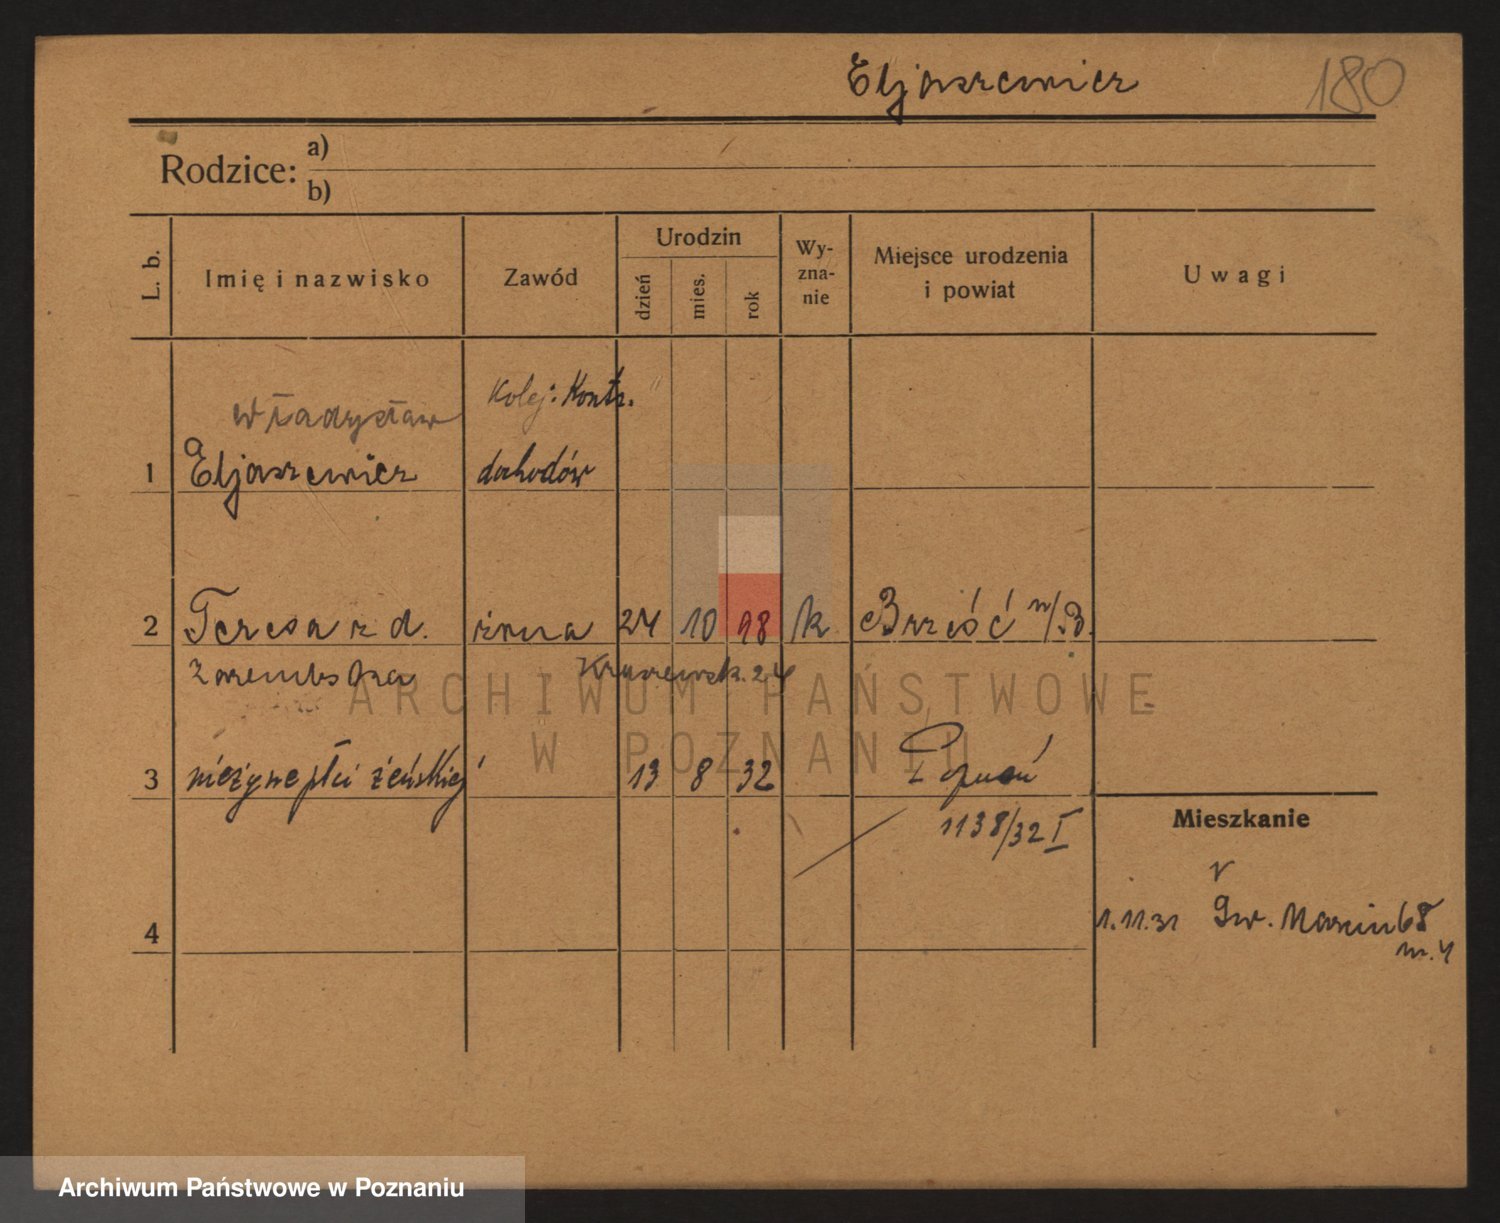 Eljaszewicz 180
Rodzice: a)
b)
L. b. Imię i nazwisko Zawód Urodzin dzień mies. rok Wy-zna-nie Miejsce urodzenia i powiat Uwagi
Władysław Kolej: Kontr.
1 Eljaszewicz dochodów
2 Teresa z d. żona 24 10 98 k Brześć n/B.
Zarembska Kraszewsk. 24
3 nieżywe płci żeńskiej 13 8 32 Poznań
1138/32 I
Mieszkanie
4 1.11.31 Św. Marcin 68
m. 4
ARCHIWUM PAŃSTWOWE
W POZNANIU
Archiwum Państwowe w Poznaniu